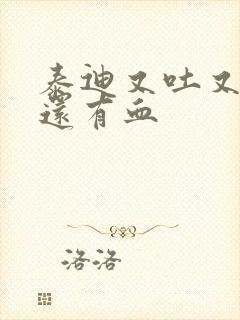 泰迪又吐又
还有血
洛洛